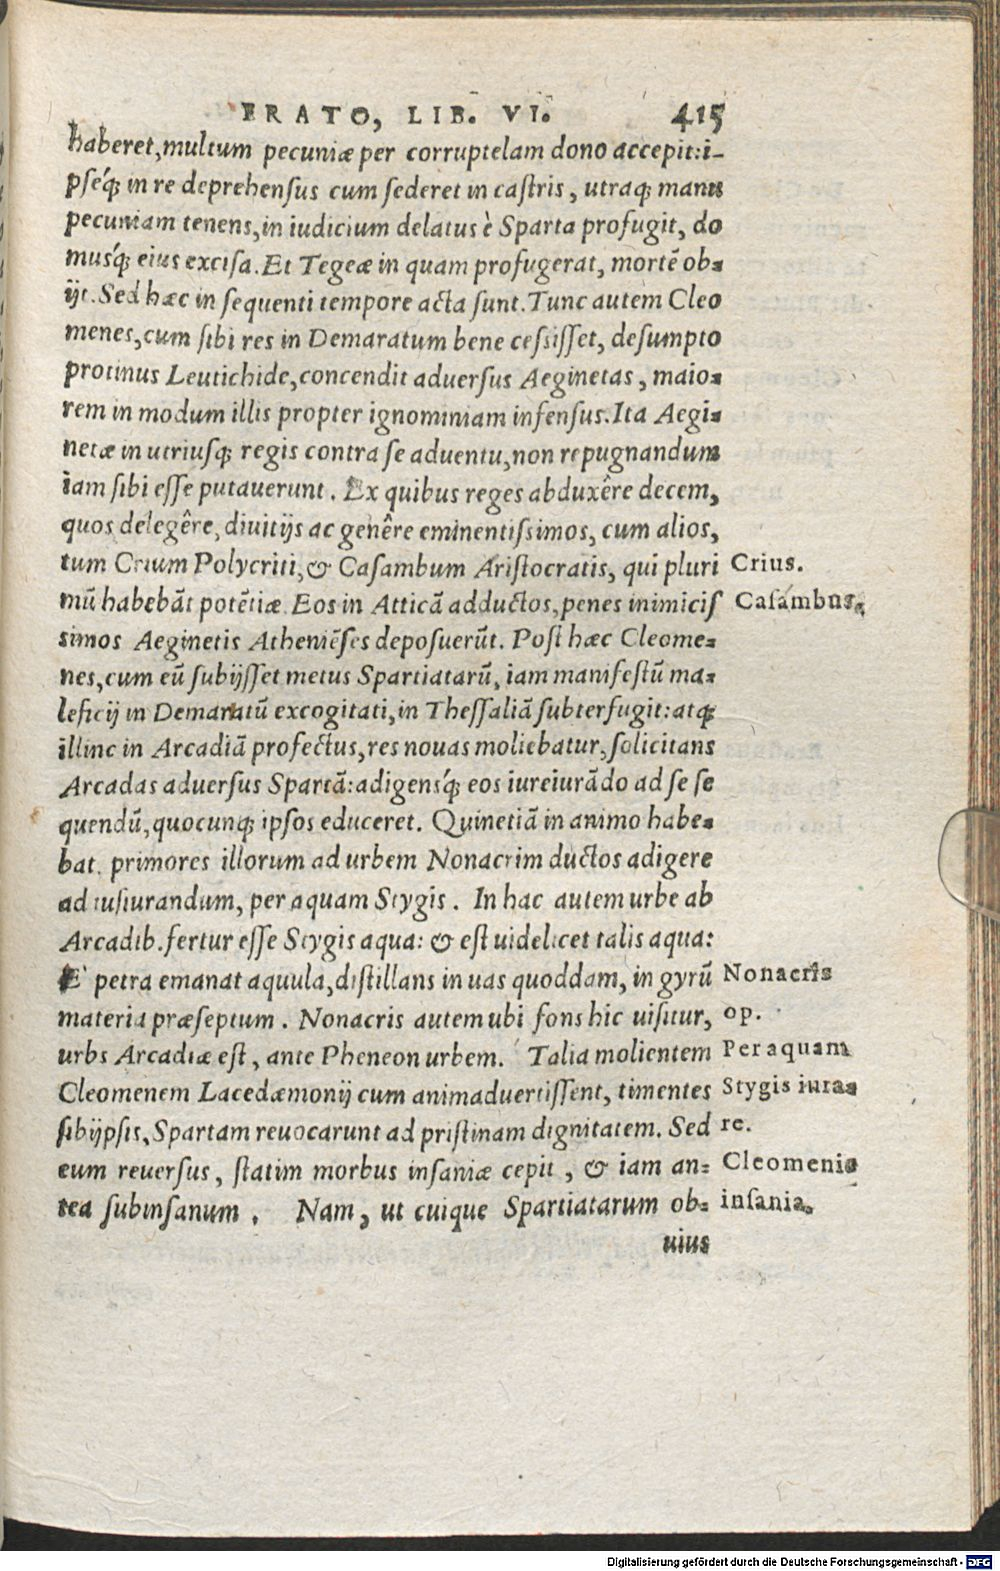 ERATO, LIB. VI. 415
haberet, multum pecuniæ per corruptelam dono accepit: i-
pseq́; in re deprehensus cum sederet in castris, utraq; manu
pecuniam tenens, in iudicium delatus è Sparta profugit, do
musq́; eius excisa. Et Tegeæ in quam profugerat, mortē ob-
ijt. Sed hæc in sequenti tempore acta sunt. Tunc autem Cleo
menes, cum sibi res in Demaratum bene cessisset, desumpto
protinus Leutichide, concendit adversus Aeginetas, maio-
rem in modum illis propter ignominiam infensus. Ita Aegi-
netæ in utriusq; regis contra se adventu, non repugnandum
iam sibi esse putaverunt. Ex quibus reges abduxêre decem,
quos delegêre, divitijs ac genêre eminentissimos, cum alios,
tum Crium Polycriti, & Casambum Aristocratis, qui pluri
Crius.
mū habebāt potētiæ. Eos in Atticā adductos, penes inimicis
Casambus.
simos Aeginetis Atheniēses deposuerūt. Post hæc Cleome-
nes, cum eū subijsset metus Spartiatarū, iam manifestū ma-
leficij in Demaratū excogitati, in Thessaliā subterfugit: atq;
illinc in Arcadiā profectus, res novas moliebatur, solicitans
Arcadas adversus Spartā: adigensq́; eos iureiurādo ad se se
quendū, quocunq; ipsos educeret. Quinetiā in animo habe-
bat, primores illorum ad urbem Nonacrim ductos adigere
ad iusiurandum, per aquam Stygis. In hac autem urbe ab
Arcadib. fertur esse Stygis aqua: & est uidelicet talis aqua:
E petra emanat aquula, distillans in uas quoddam, in gyrū
Nonacris
materia præseptum. Nonacris autem ubi fons hic uisitur,
op.
urbs Arcadiæ est, ante Pheneon urbem. Talia molientem
Per aquam
Cleomenem Lacedæmonij cum animadvertissent, timentes
Stygis iura-
sibijpsis, Spartam revocarunt ad pristinam dignitatem. Sed
re.
eum reversus, statim morbus insaniæ cepit, & iam an-
Cleomenis
tea subinsanum. Nam, ut cuique Spartiatarum ob-
insania.
uius
Digitalisierung gefördert durch die Deutsche Forschungsgemeinschaft - DFG